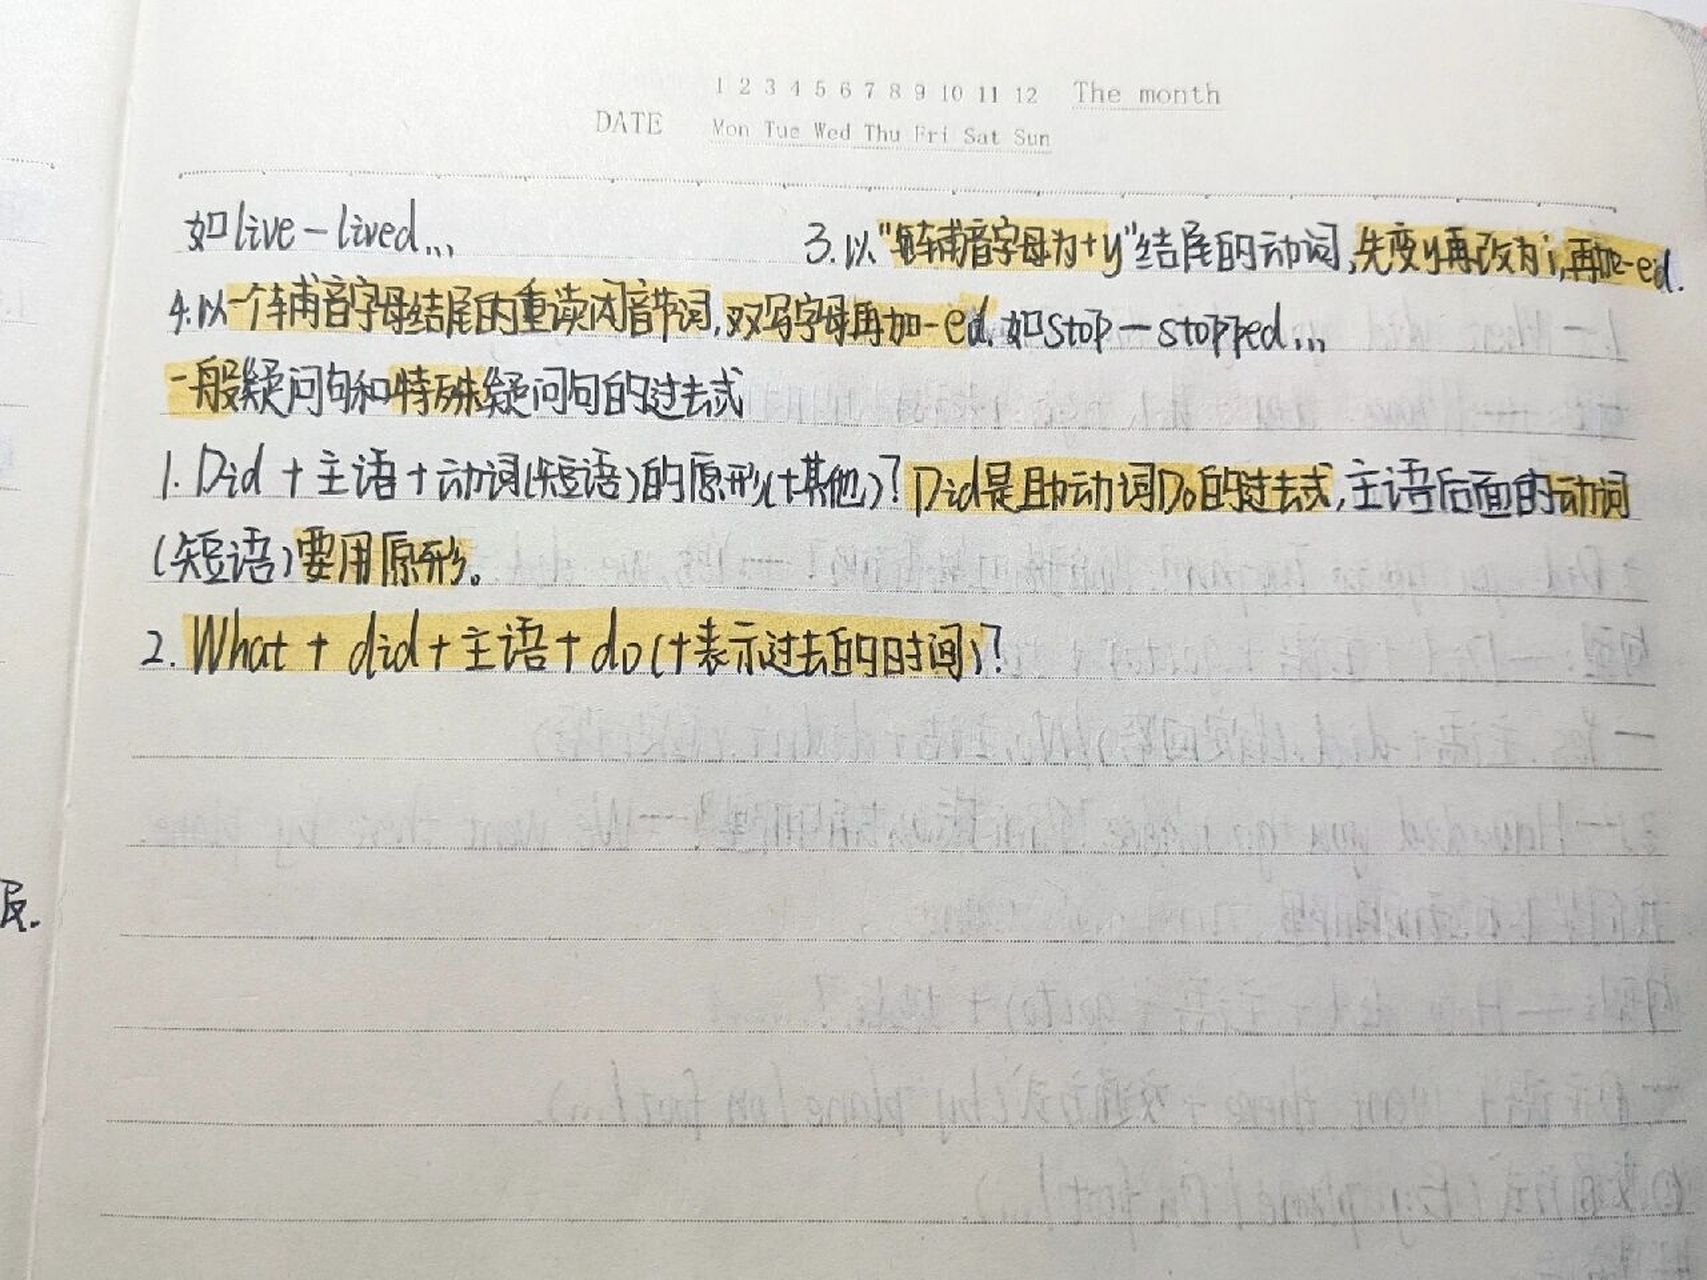 1 2 3 4 5 6 7 8 9 10 11 12 The month
DATE Mon Tue Wed Thu Fri Sat Sun
如live-lived... 3.以"辅音字母+y"结尾的动词,先变y再改为i,再加-ed.
4.以一个辅音字母结尾的重读闭音节词,双写字母再加-ed.如stop-stopped...
一般疑问句和特殊疑问句的过去式
1.Did+主语+动词(短语)的原形(+其他)?Did是助动词Do的过去式,主语后面的动词
(短语)要用原形。
2.What+did+主语+do(+表示过去的时间)?